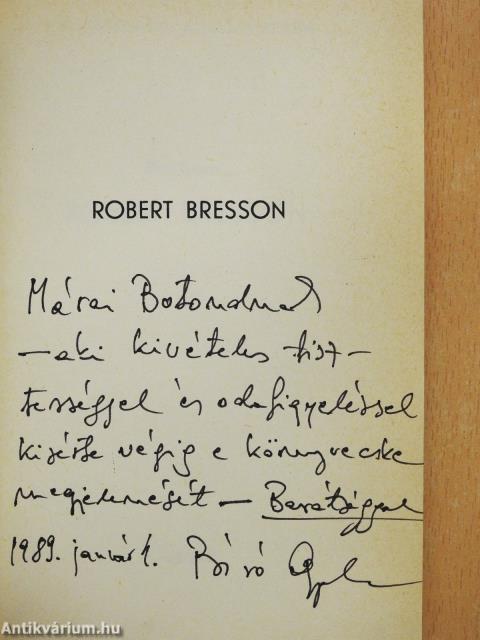 ROBERT BRESSON
Márai Botondnak
— aki kivételes tisz-
tességgel és odafigyeléssel
kisérte végig e könyvecske
megjelenését — Barátsággal
1989. január 1. Bíró Gyula
Antikvárium.hu